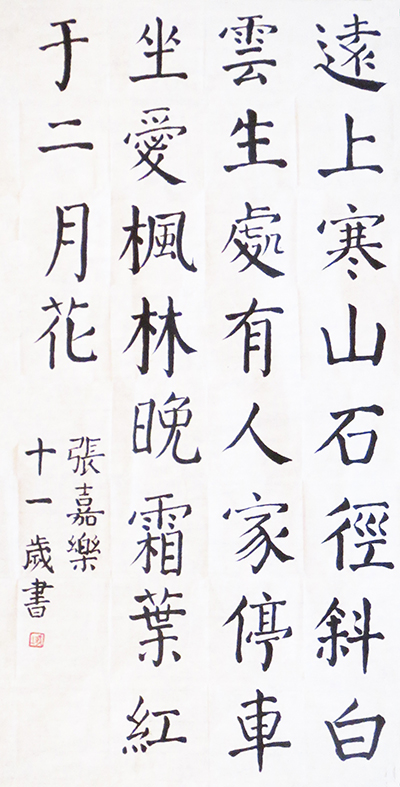 遠上寒山石徑斜白
雲生處有人家停車
坐愛楓林晚霜葉紅
于二月花
張嘉樂
十一歲書